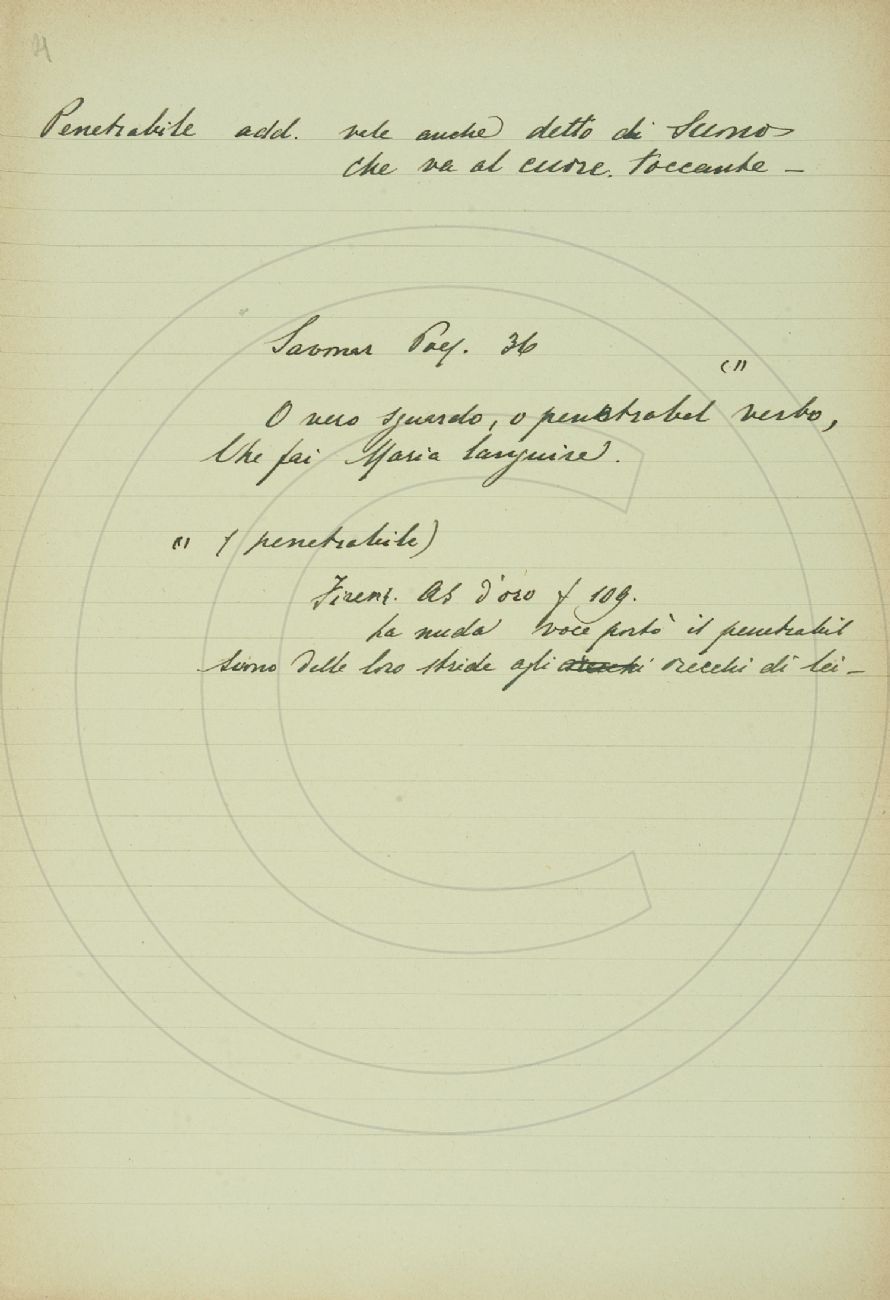 21
Penetrabile add. vale anche detto di Suono
che va al cuore. toccante –
Savonar Poes. 36
(1)
O vero sguardo, o penetrabel verbo,
Che fai Maria languire.
(1) (penetrabile)
Firenz. As d'oro f 109.
La nuda voce portò il penetrabil
suono delle loro stride agli orecchi di lei –